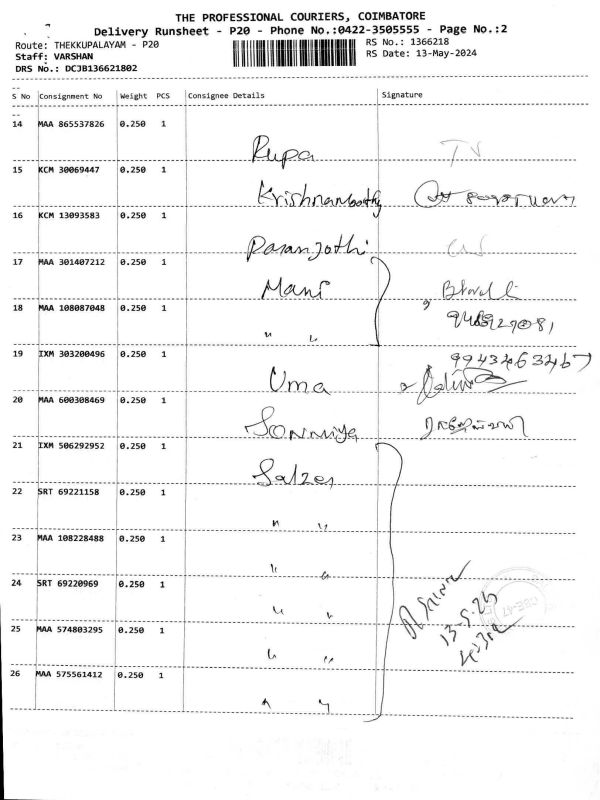 THE PROFESSIONAL COURIERS, COIMBATORE
Delivery Runsheet - P20 - Phone No.:0422-3505555 - Page No.:2
Route: THEKKUPALAYAM - P20 RS No.: 1366218
Staff: VARSHAN RS Date: 13-May-2024
DRS No.: DCJB136621802
S No Consignment No Weight PCS Consignee Details Signature
14 MAA 865537826 0.250 1
Rupa
15 KCM 30069447 0.250 1
Krishnamoorthy
16 KCM 13093583 0.250 1
Paranjothi
17 MAA 301407212 0.250 1
Mani
18 MAA 108087048 0.250 1
" "
19 IXM 303200496 0.250 1
9943463467
Uma
20 MAA 600308469 0.250 1
Sonmiya
21 IXM 506292952 0.250 1
Salzer
22 SRT 69221158 0.250 1
" "
23 MAA 108228488 0.250 1
" "
24 SRT 69220969 0.250 1
" "
25 MAA 574803295 0.250 1
" "
26 MAA 575561412 0.250 1
" "